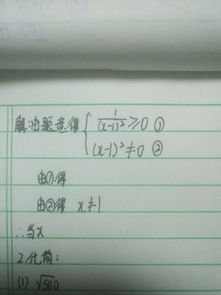 解:由题意得 { 1/(x-1)² ≥0 ①
(x-1)²≠0 ②
由①得
由②得 x≠1
∴当x
2.化简:
(1) √500